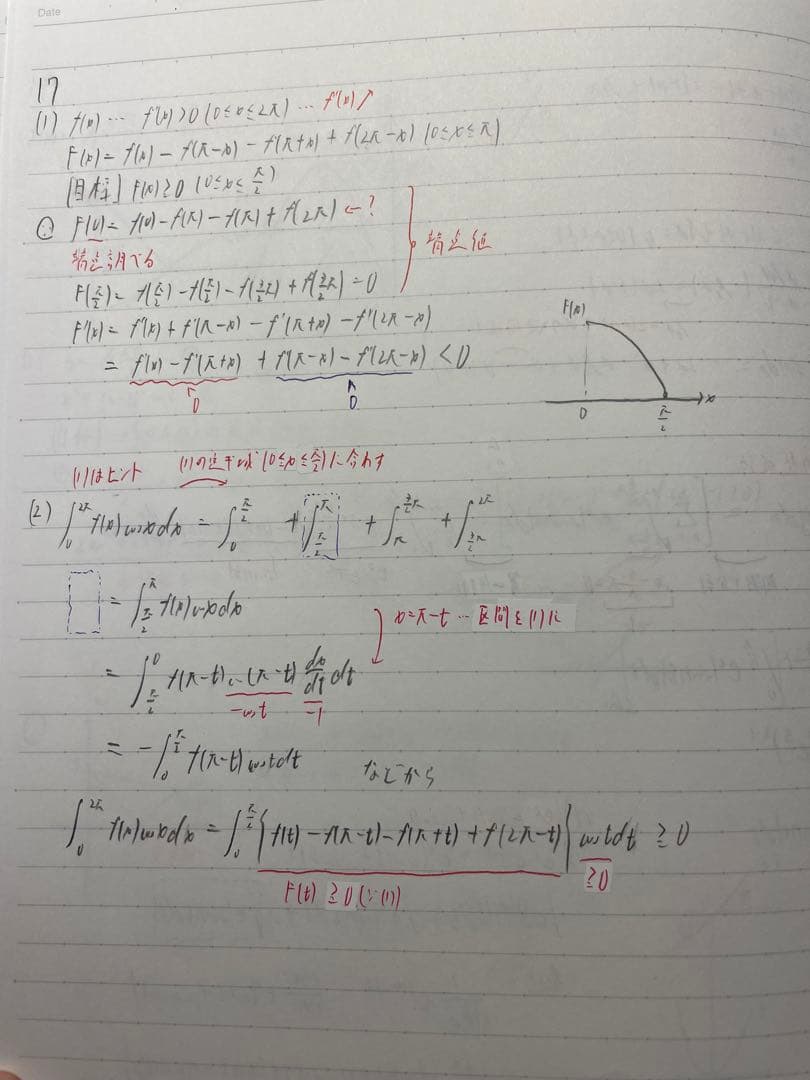 Date
17
(1) f(x) … f''(x)>0 (0≦x≦2π) … f'(x)↗
F(x) = f(x) − f(π−x) − f(π+x) + f(2π−x) (0≦x≦π)
[目標] F(x)≧0 (0≦x≦π/2)
F(0) = f(0) − f(π) − f(π) + f(2π) ←?
端点調べる
端点値
F(π/2) = f(π/2) − f(π/2) − f(3/2π) + f(3/2π) = 0
F'(x) = f'(x) + f'(π−x) − f'(π+x) − f'(2π−x)
= f'(x) − f'(π+x) + f'(π−x) − f'(2π−x) < 0
0 0
F(x)
0 π/2 x
(1)はヒント (1)の定義域(0≦x≦π/2)に合わす
(2) ∫₀^2π f(x)cosxdx = ∫₀^π/2 + ∫_π/2^π + ∫_π^3/2π + ∫_3/2π^2π
= ∫_π/2^π f(x)cosxdx
x=π−t … 区間を(1)に
= ∫_π/2^0 f(π−t)cos(π−t) dx/dt dt
−cost −1
= −∫₀^π/2 f(π−t)costdt などから
∫₀^2π f(x)cosxdx = ∫₀^π/2 {f(t) − f(π−t) − f(π+t) + f(2π−t)} costdt ≧ 0
F(t) ≧0 (∵(1)) ≧0